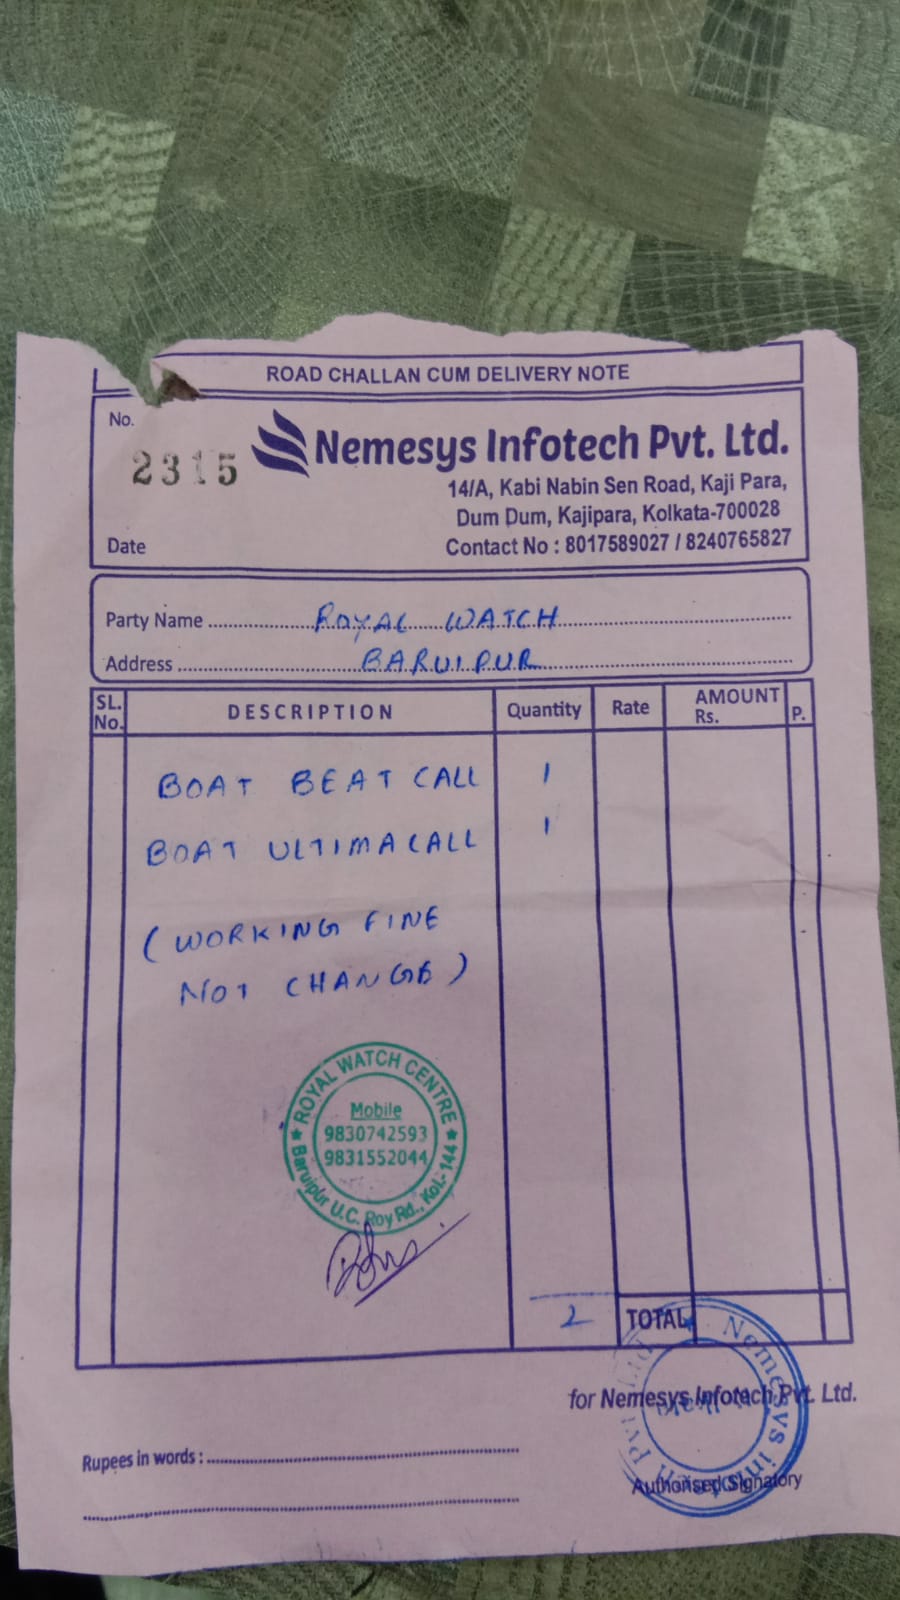 ROAD CHALLAN CUM DELIVERY NOTE
No.
2315
Nemesys Infotech Pvt. Ltd.
14/A, Kabi Nabin Sen Road, Kaji Para,
Dum Dum, Kajipara, Kolkata-700028
Date
Contact No : 8017589027 / 8240765827
Party Name ROYAL WATCH
Address BARUIPUR
SL. No. DESCRIPTION Quantity Rate AMOUNT Rs. P.
BOAT BEAT CALL 1
BOAT ULTIMA CALL 1
(WORKING FINE
NOT CHANGE)
ROYAL WATCH CENTRE
Mobile
9830742593
9831552044
Baruipur U.C. Roy Rd., Kol.-144
2 TOTAL
for Nemesys Infotech Pvt. Ltd.
Nemesys Infotech Pvt Ltd
Rupees in words :
Authorised Signatory